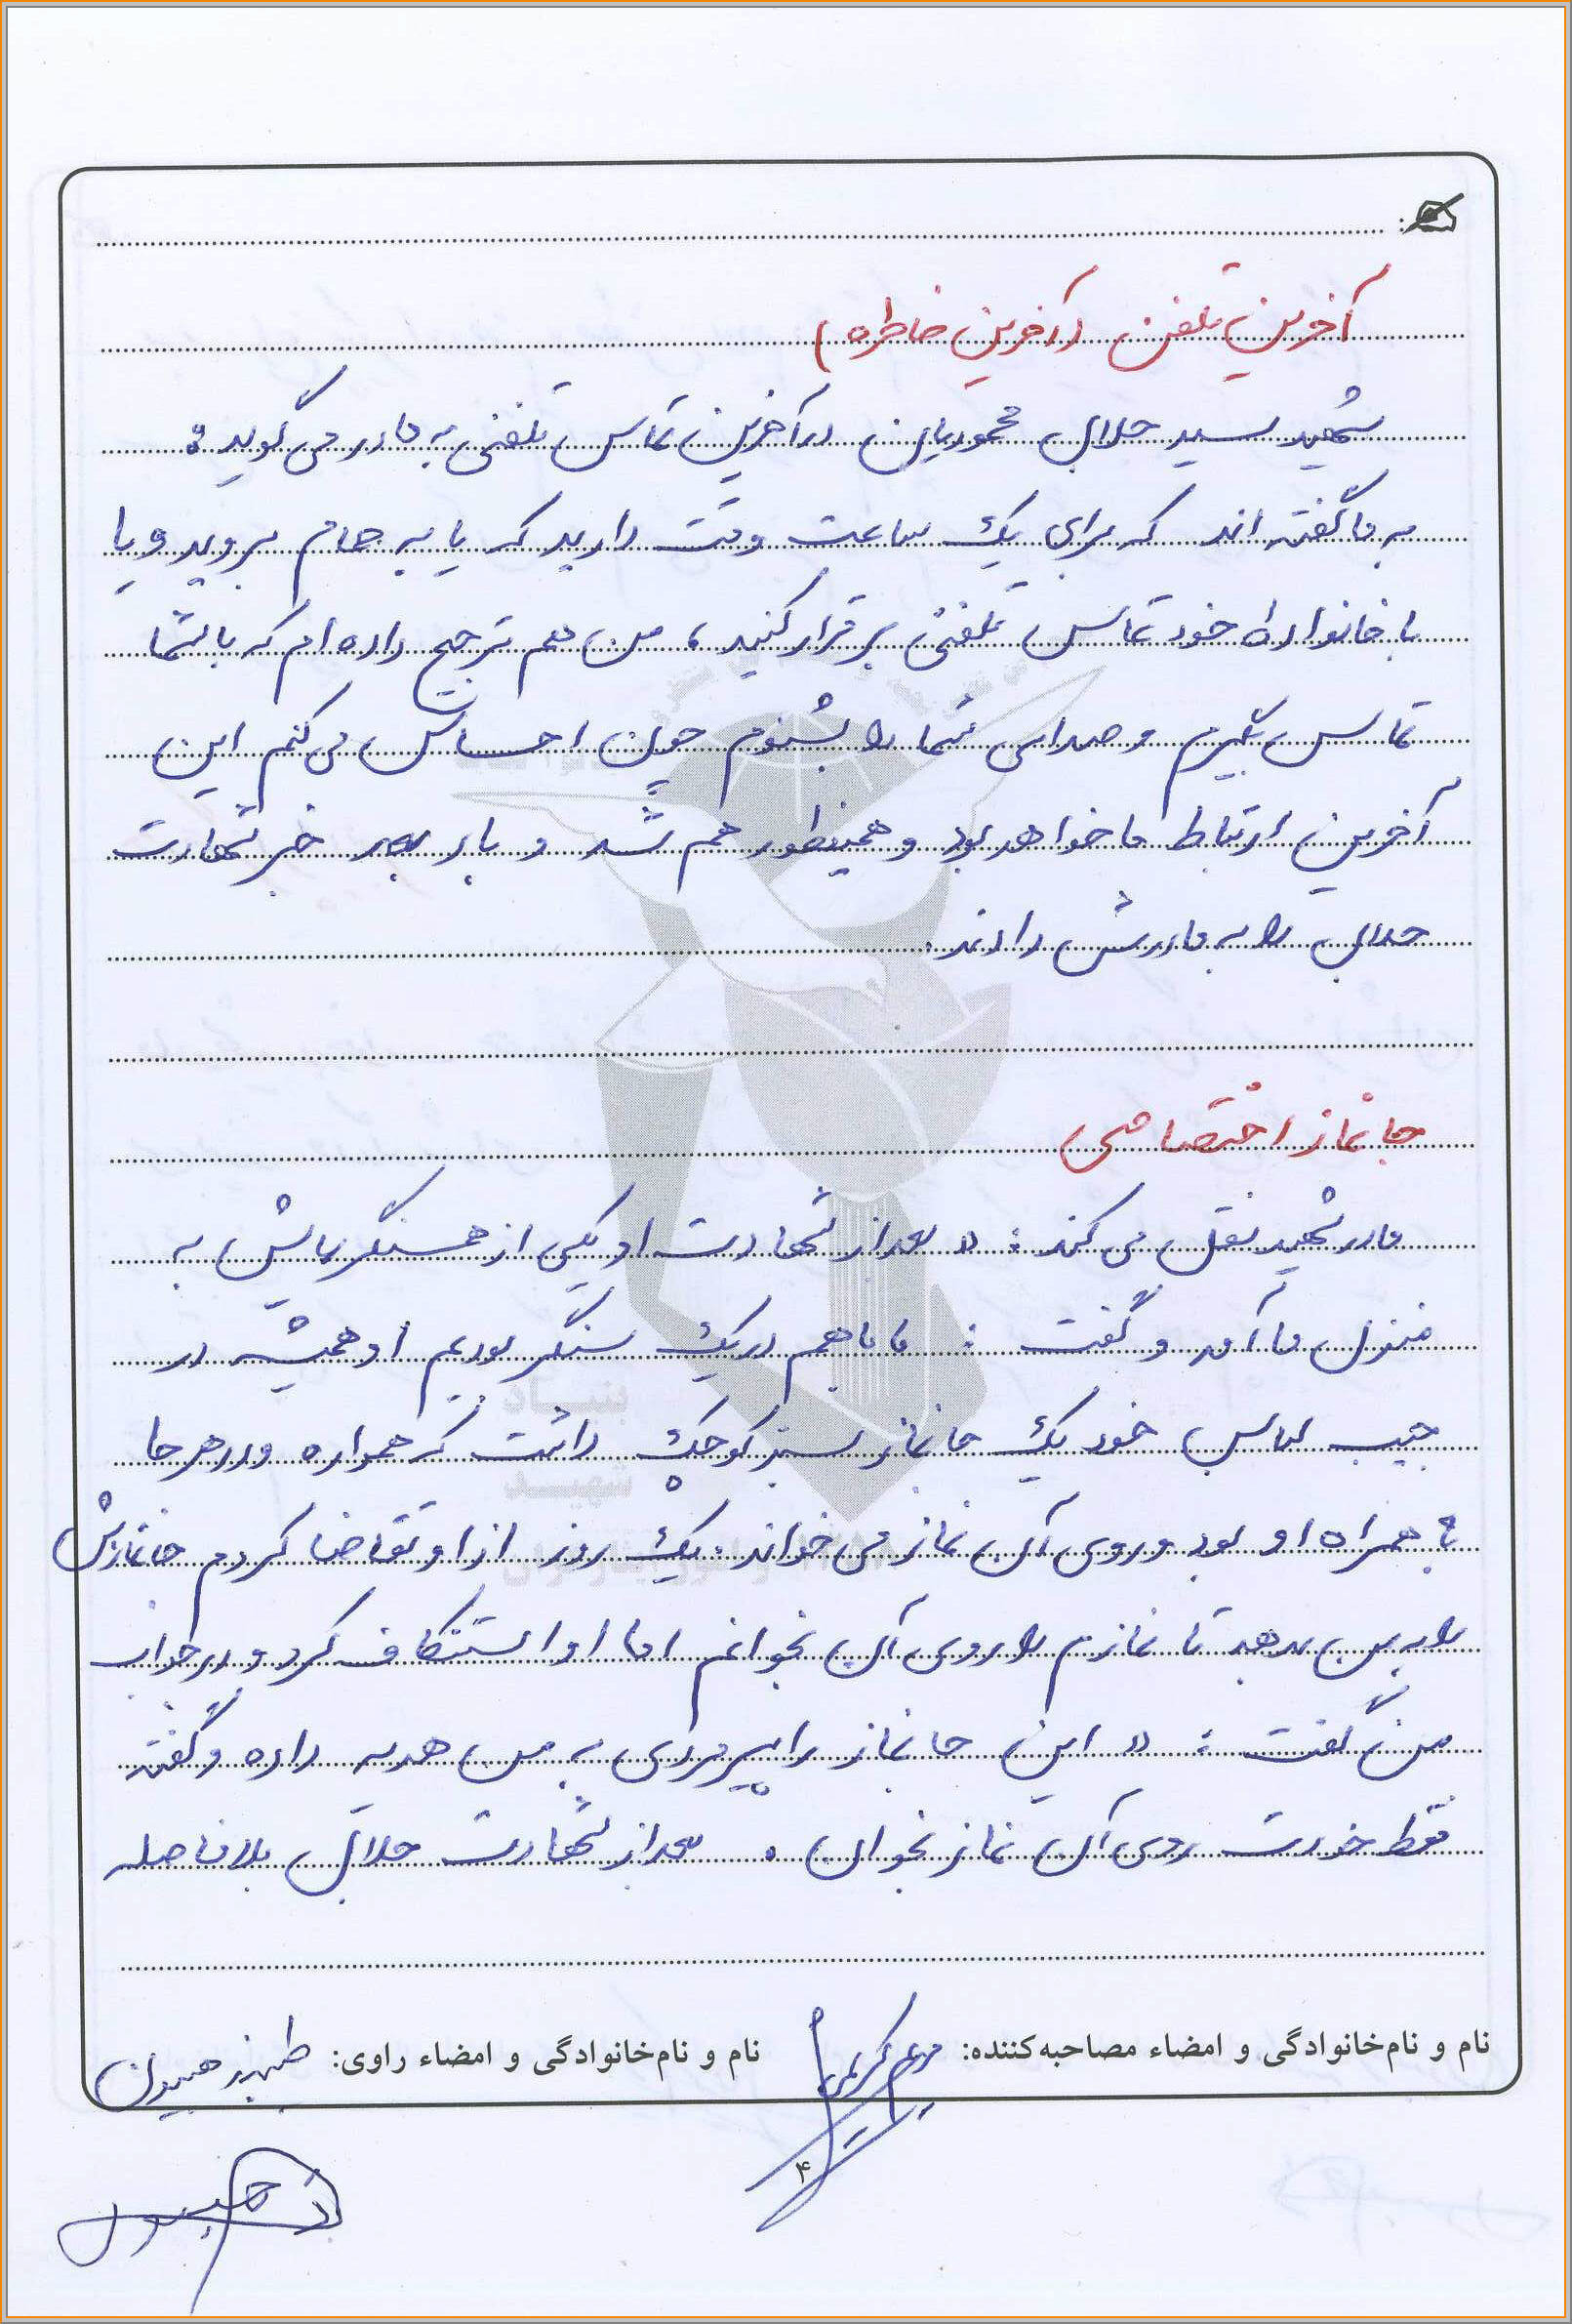 آخرین تلفن (آخرین خاطره)
شهید سید جلال محمودیان در آخرین تماس تلفنی به مادر می گوید:
به ما گفته اند که برای یک ساعت وقت دارید که یا به حمام بروید و یا
با خانواده خود تماس تلفنی برقرار کنید، من هم ترجیح داده ام که با شما
تماس بگیرم و صدای شما را بشنوم چون احساس می کنم این
آخرین ارتباط ما خواهد بود و همینطور هم شد و بار بعد خبر شهادت
جلال را به مادرش دادند.
جانماز اختصاصی
مادر شهید نقل می کند: «بعد از شهادت او یکی از همسنگریایش به
منزل ما آمد و گفت: ما با هم در یک سنگر بودیم او همیشه در
جیب لباس خود یک جانماز سبز کوچک داشت که همواره و در هر جا
همراه او بود و روی آن نماز می خواند. یک روز از او تقاضا کردم جانمازش
را به من بدهد تا نمازم را روی آن بخوانم اما او استنکاف کرد و در جواب
من گفت: «این جانماز را پیرمردی به من هدیه داده و گفته
فقط خودت روی آن نماز بخوان. بعد از شهادت جلال بلافاصله
بنیاد
شهید
نام و نام‌خانوادگی و امضاء مصاحبه‌کننده: مریم کریمی نام و نام‌خانوادگی و امضاء راوی:
۴